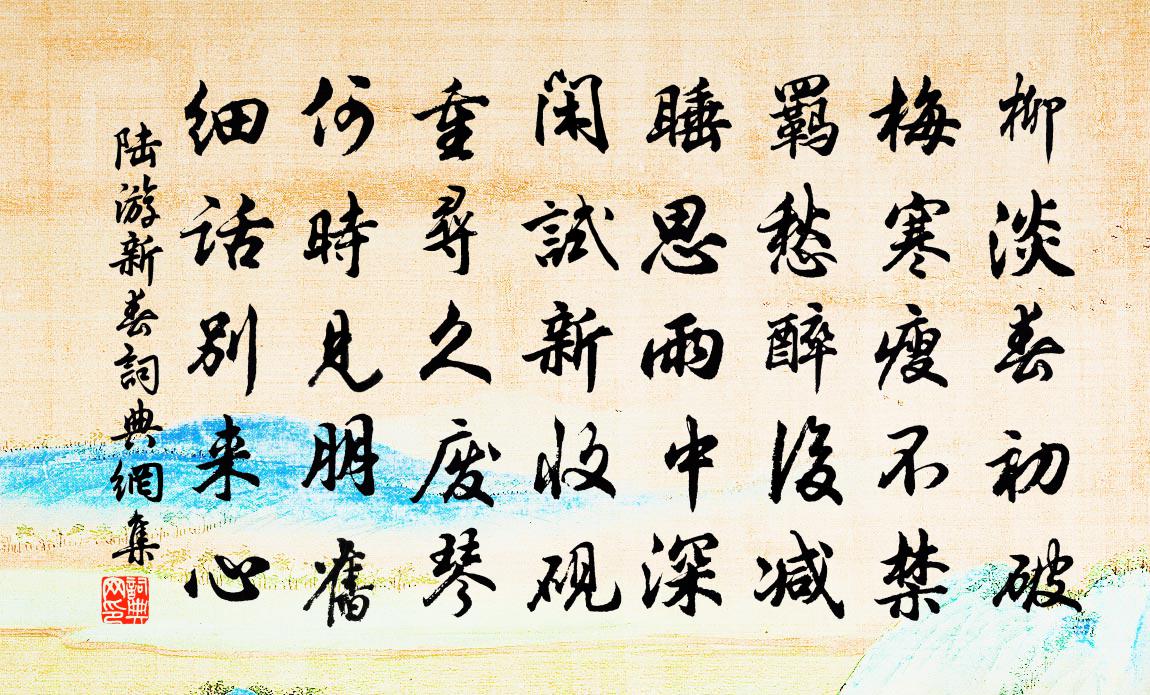 柳淡春初破
梅寒瘦不禁
羁愁醉後减
睡思雨中深
闲試新收硯
重尋久废琴
何時見朋舊
细话别来心
陆游新春詞典網集
詞典网印